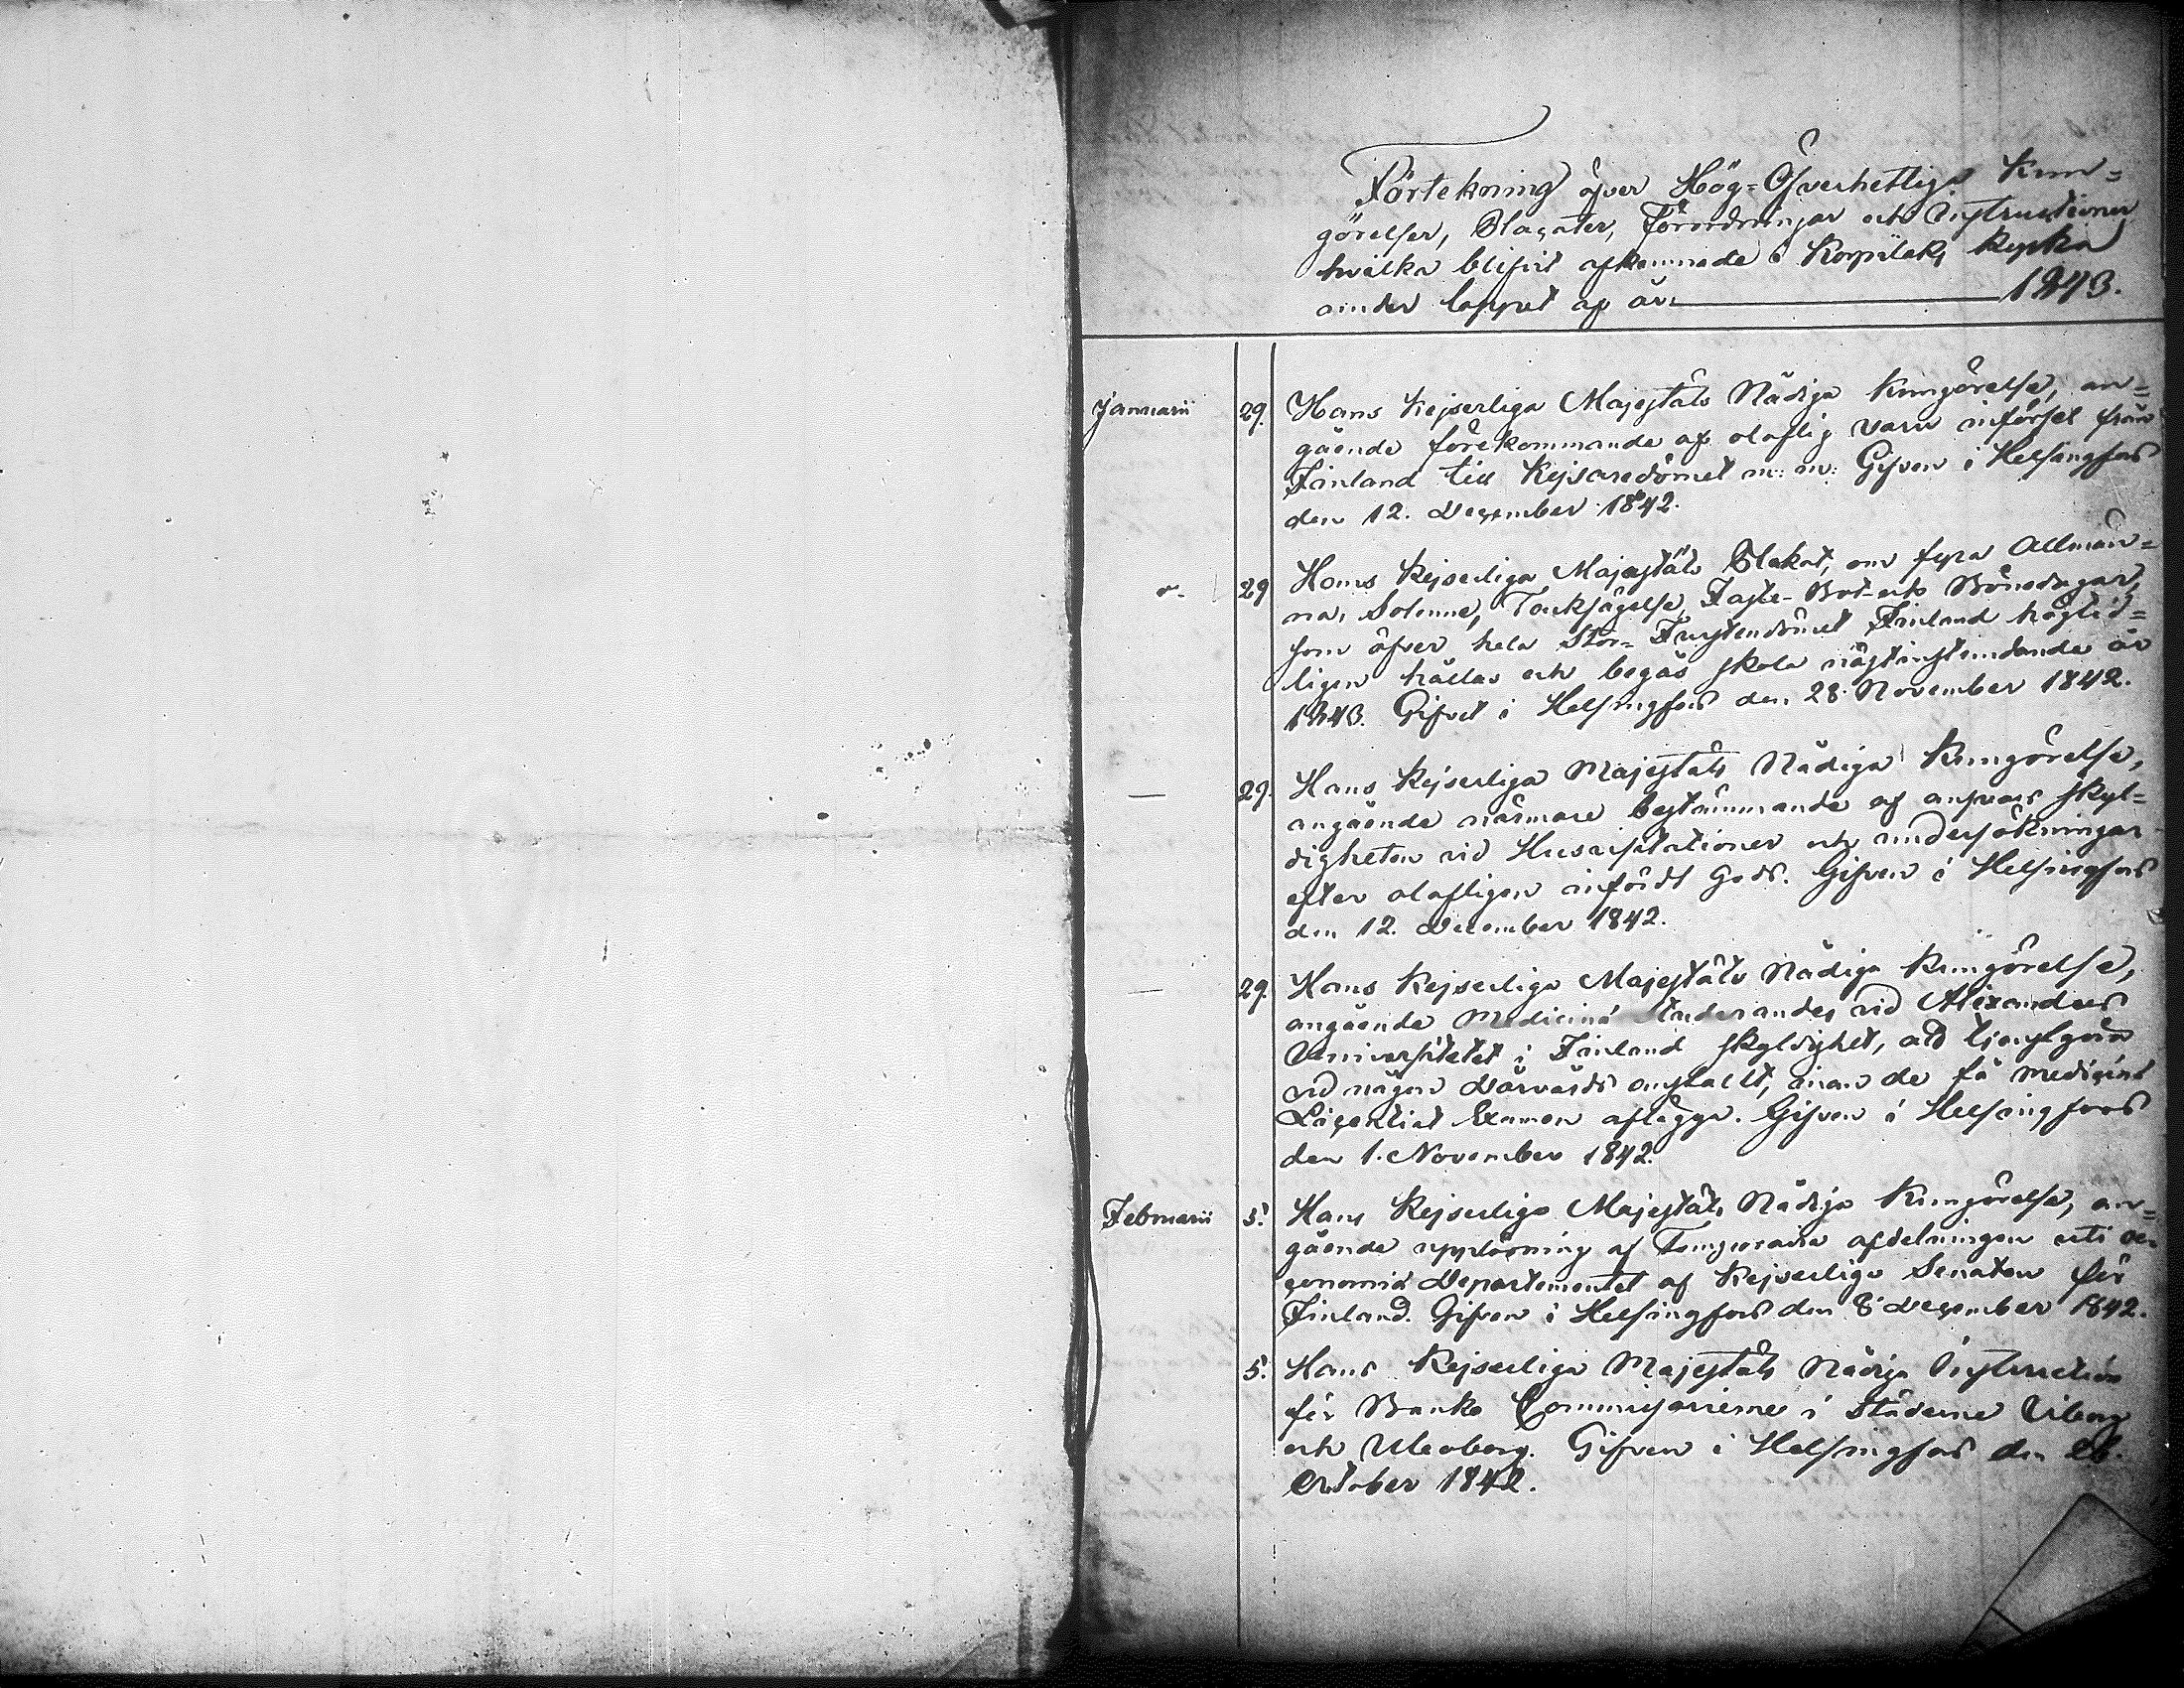 Förtekning öfver Hög-Öfverhetliga Kun=
görelser, Placater, Förordningar och Instructioner
hvilka blifvit afkunnade i Korpilaks kyrka
under loppet af år 1843.
Januarii 29. Hans Kejserliga Majestäts Nådiga Kungörelse, an=
gående förekommande af olaflig varu införsel från
Finland till Kejsaredömet m: m: Gifven i Helsingfors
den 12. December 1842.
29 Hans Kejserliga Majestäts Plakat, om fyra Allmän=
na, Solenne, Tacksägelse, Faste- Bot- och Bönedagar,
som öfver hela Stor-Furstendömet Finland högtid=
ligen hållas och begås skola nästinstundande år
1843. Gifvet i Helsingfors den 28 November 1842.
— 29. Hans Kejserliga Majestäts Nådiga Kungörelse,
angående närmare bestämmande af ansvars skyl=
digheten vid Husvisitationer och undersökningar
efter olafligen infördt Gods. Gifven i Helsingfors
den 12. December 1842.
— 29. Hans Kejserliga Majestäts Nådiga Kungörelse,
angående Medicinæ Studerandes vid Alexanders
Universitetet i Finland skyldighet, att tjenstgöra
vid någon Dårvårds anstallt, innan de få Medicinæ
Licentiat Examen aflägga. Gifven i Helsingfors
den 1. November 1842.
Februarii 5. Hans Kejserliga Majestäts Nådiga Kungörelse, an=
gående upplösning af Temporaira afdelningen uti oe=
conomiæ Departementet af Kejserliga Senaten för
Finland. Gifven i Helsingfors den 8 December 1842.
5. Hans Kejserliga Majestäts Nådiga Instruction
för Banko Commissarierne i Städerne Viborg
och Uleaborg. Gifven i Helsingfors den
October 1842.